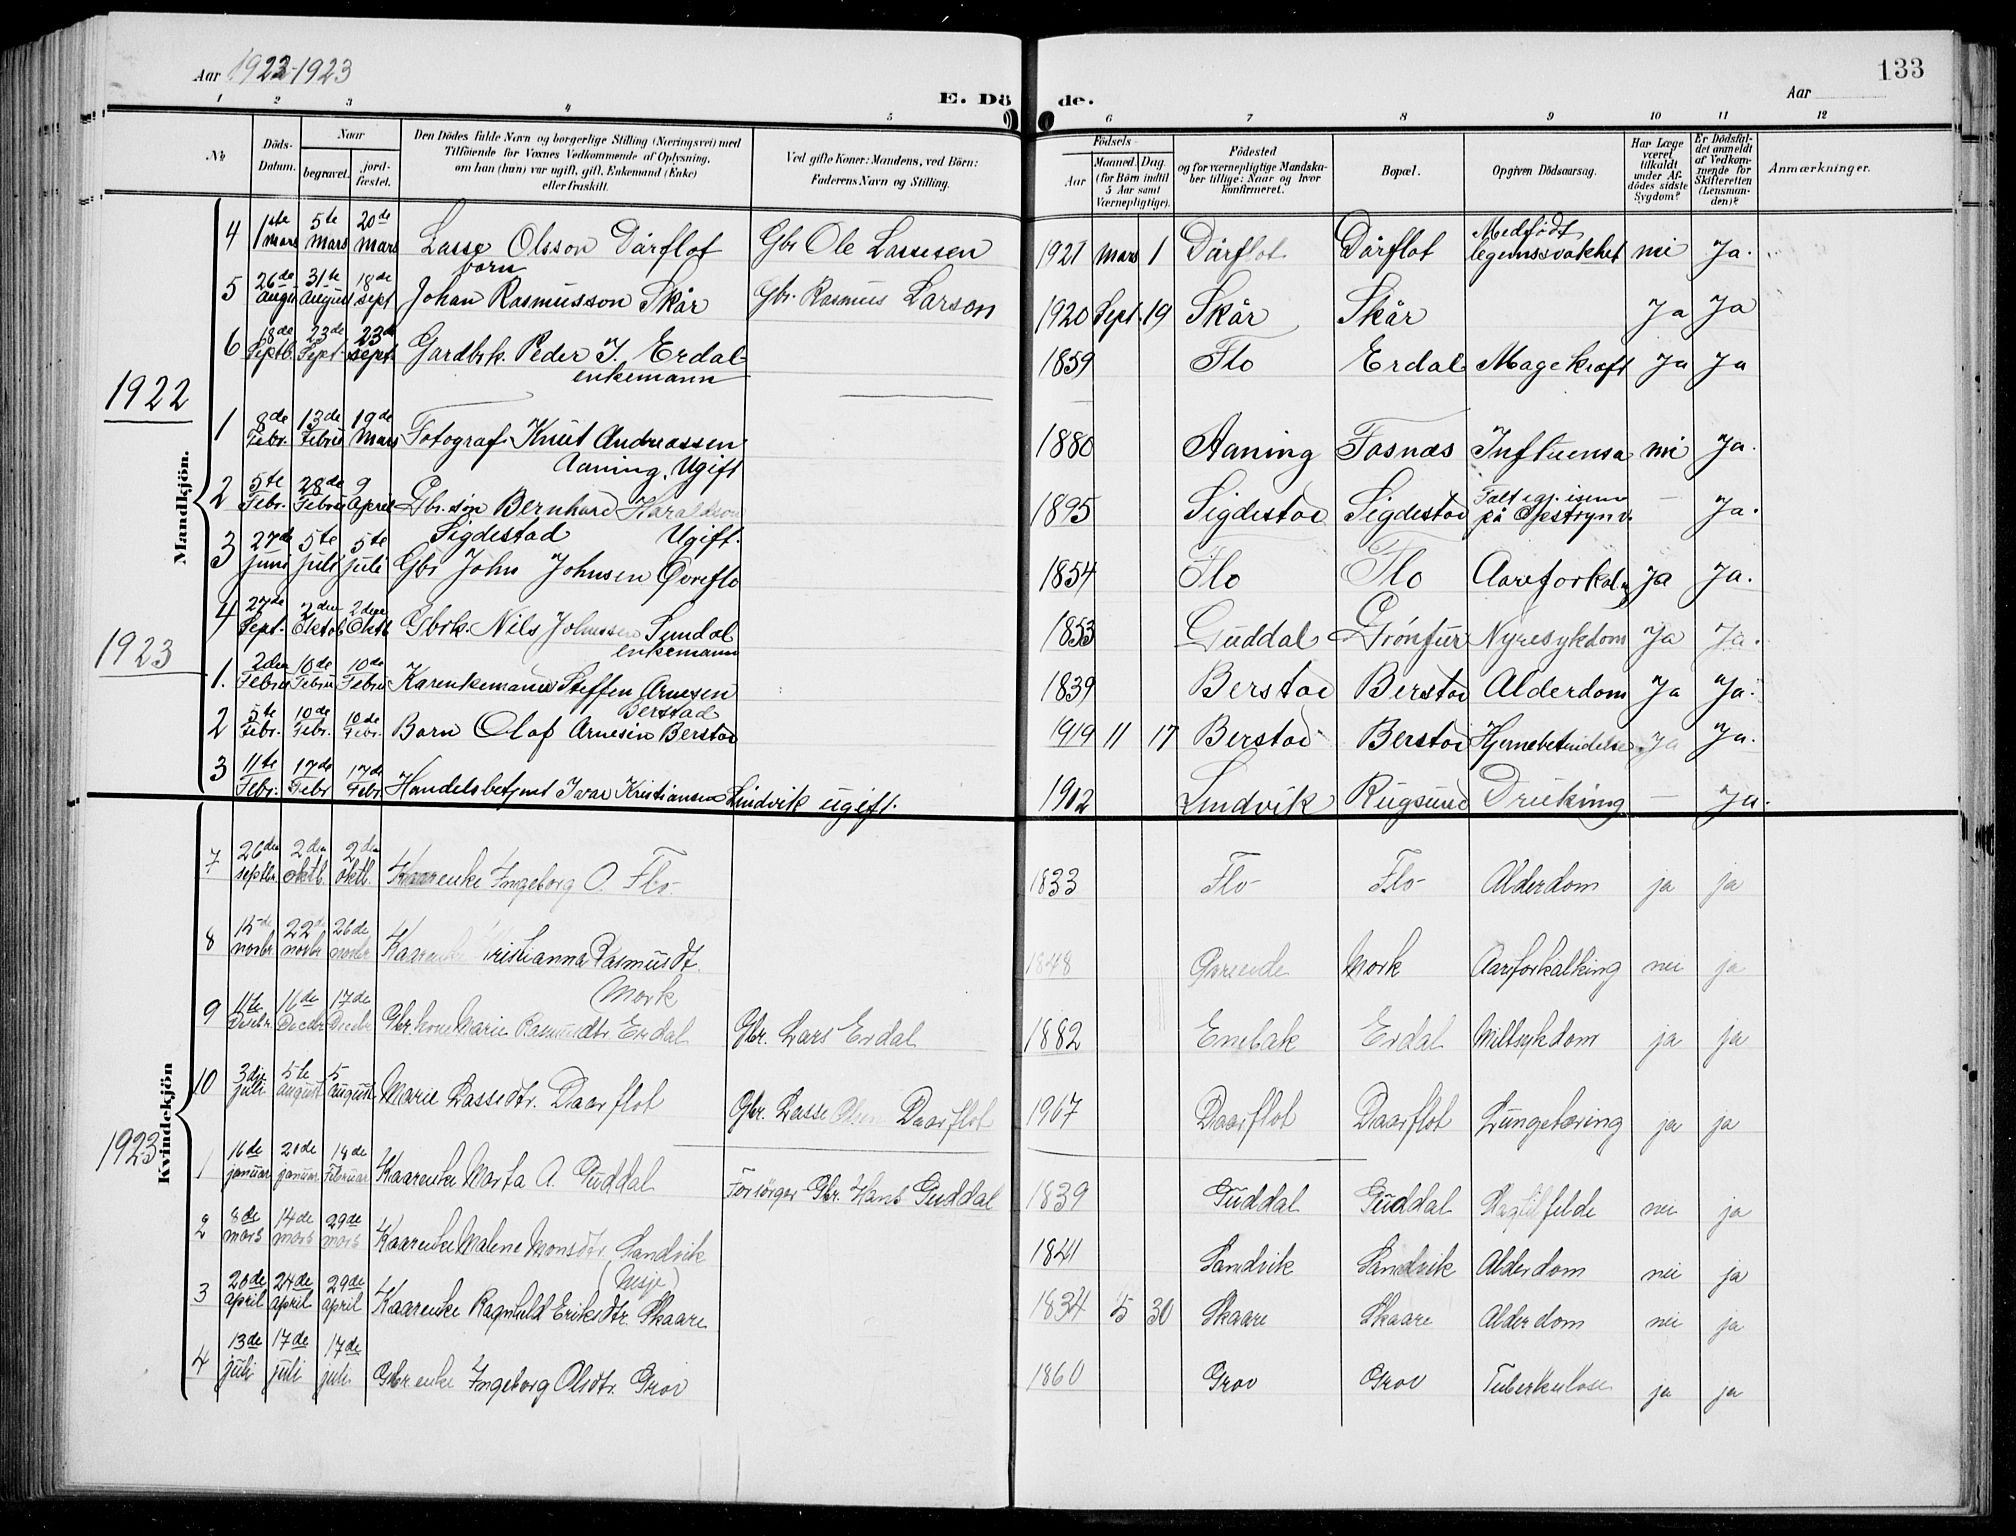 Aar 1922-1923
E. Dö de.
133
Aar
1 2 3 4 5 6 7 8 9 10 11 12
No
Döds-Datum.
Naar
begravet.
jord-fæstet.
Den Dödes fulde Navn og borgerlige Stilling (Næringsvei) med
Tilföiende for Voxnes Vedkommende af Oplysning,
om han (hun) var ugift, gift, Enkemand (Enke)
eller fraskilt.
Ved gifte Koner: Mandens, ved Börn:
Faderens Navn og Stilling.
Födsels-
Aar
Maaned. Dag.
(for Börn indtil
5 Aar samt
Værnepligtige).
Födested
og for værnepligtige Mandska-
ber tillige: Naar og hvor
konfirmeret.
Bopæl.
Opgiven Dödsaarsag.
Har Læge
været
tilkaldt
under Af-
dödes sidste
Sygdom?
Er Dödsfal-
det anmeldt
af Vedkom-
mende for
Skifteretten
(Lensman-
den)?
Anmærkninger.
Mandkjön.
4 1ste mars 5te mars 20de mars Lasse Olsson Dårflot Gbr Ole Lassesen 1921 mars 1 Dårflot Dårflot Medfødt legemssvakhet nei Ja.
5 26de august 31te august 18de sept. barn Johan Rasmusson Skår Gbr. Rasmus Larson 1920 Sept. 19 Skår Skår Ja Ja
6 18de Septb. 23de Sept. 23de sept. Gardbrk. Peder J. Erdal enkemann 1859 Flo Erdal Mage kræft Ja Ja
1922
1 8de Febr. 13de Febru 19de Mars Fotograf Knut Andreassen Aaning. Ugift 1880 Aaning Fosnæs Influensa nei Ja.
2 5te Febr. 28de Febru 9 April Gbr. søn Bernhard Haraldson Sigdestad Ugift. 1895 Sigdestad Sigdestad Falt igj. isenn på Opstrynv. — Ja.
3 27de Juni 5te Juli 5te Juli Gbr John Johnsen Øvreflo 1854 Flo Flo Aareforkaln. Ja Ja.
4 27de Sept. 2den Oktob 2den Oktb Gbrk. Nils Johnssen Sundal enkemann 1853 Guddal Grønfur Nyresykdom Ja Ja.
1923
1. 2den Febru 10de Febru 10de Febru Karenkemann Steffen Arnesen Berstad 1839 Berstad Berstad Alderdom Ja Ja.
2 5te Febr. 10de Febr. 10de Febr. Barn Olaf Arnesen Berstad 1919 11 17 Berstad Berstad Hjernebetendelse Ja Ja.
3 11te Febr. 17de Febr 17de Febr. Handelsbetjent Ivar Kristiansen Lindvik ugift. 1902 Lindvik Rugsund Drukning — Ja.
Kvindekjön
7 26den septbr. 2den oktb. 2den oktb. Kaarenke Ingeborg O. Flo 1833 Flo Flo Alderdom ja ja
8 15de novbr 22de novbr 26de novbr Kaarenke Kristianna Rasmusdt. Mork 1848 Mork Aareforkalking nei ja
9 11te Decbr. 16de Decbr 17de Decbr Gbr. kone Marie Rasmusdtr Erdal Gbr. Lars Erdal 1882 Enebak Erdal Miltsykdom ja ja
10 3die juli 5te august 5 august Marie Lassedtr. Daarflot Gbr. Lasse Olsen Daarflot 1907 Daarflot Daarflot Lungetæring ja ja
1923
1 16de januar 20de januar 14de Februar Kaarenke Marta A. Guddal Forsørger Gbr. Hans Guddal 1839 Guddal Guddal nei ja
2 8de mars 14de mars 29de mars Kaarenke Malene Monsdtr. Sandvik (Nesje) 1841 Sandvik Sandvik Alderdom nei ja
3 20de april 24de april 29de april Kaarenke Ragnhild Eriksdtr. Skaare 1834 5 30 Skaare Skaare Alderdom nei ja
4 13de juli 17de juli 17de juli Gbr. enke Ingeborg Olsdtr. Grov 1860 Grov Grov Tuberkulose ja ja